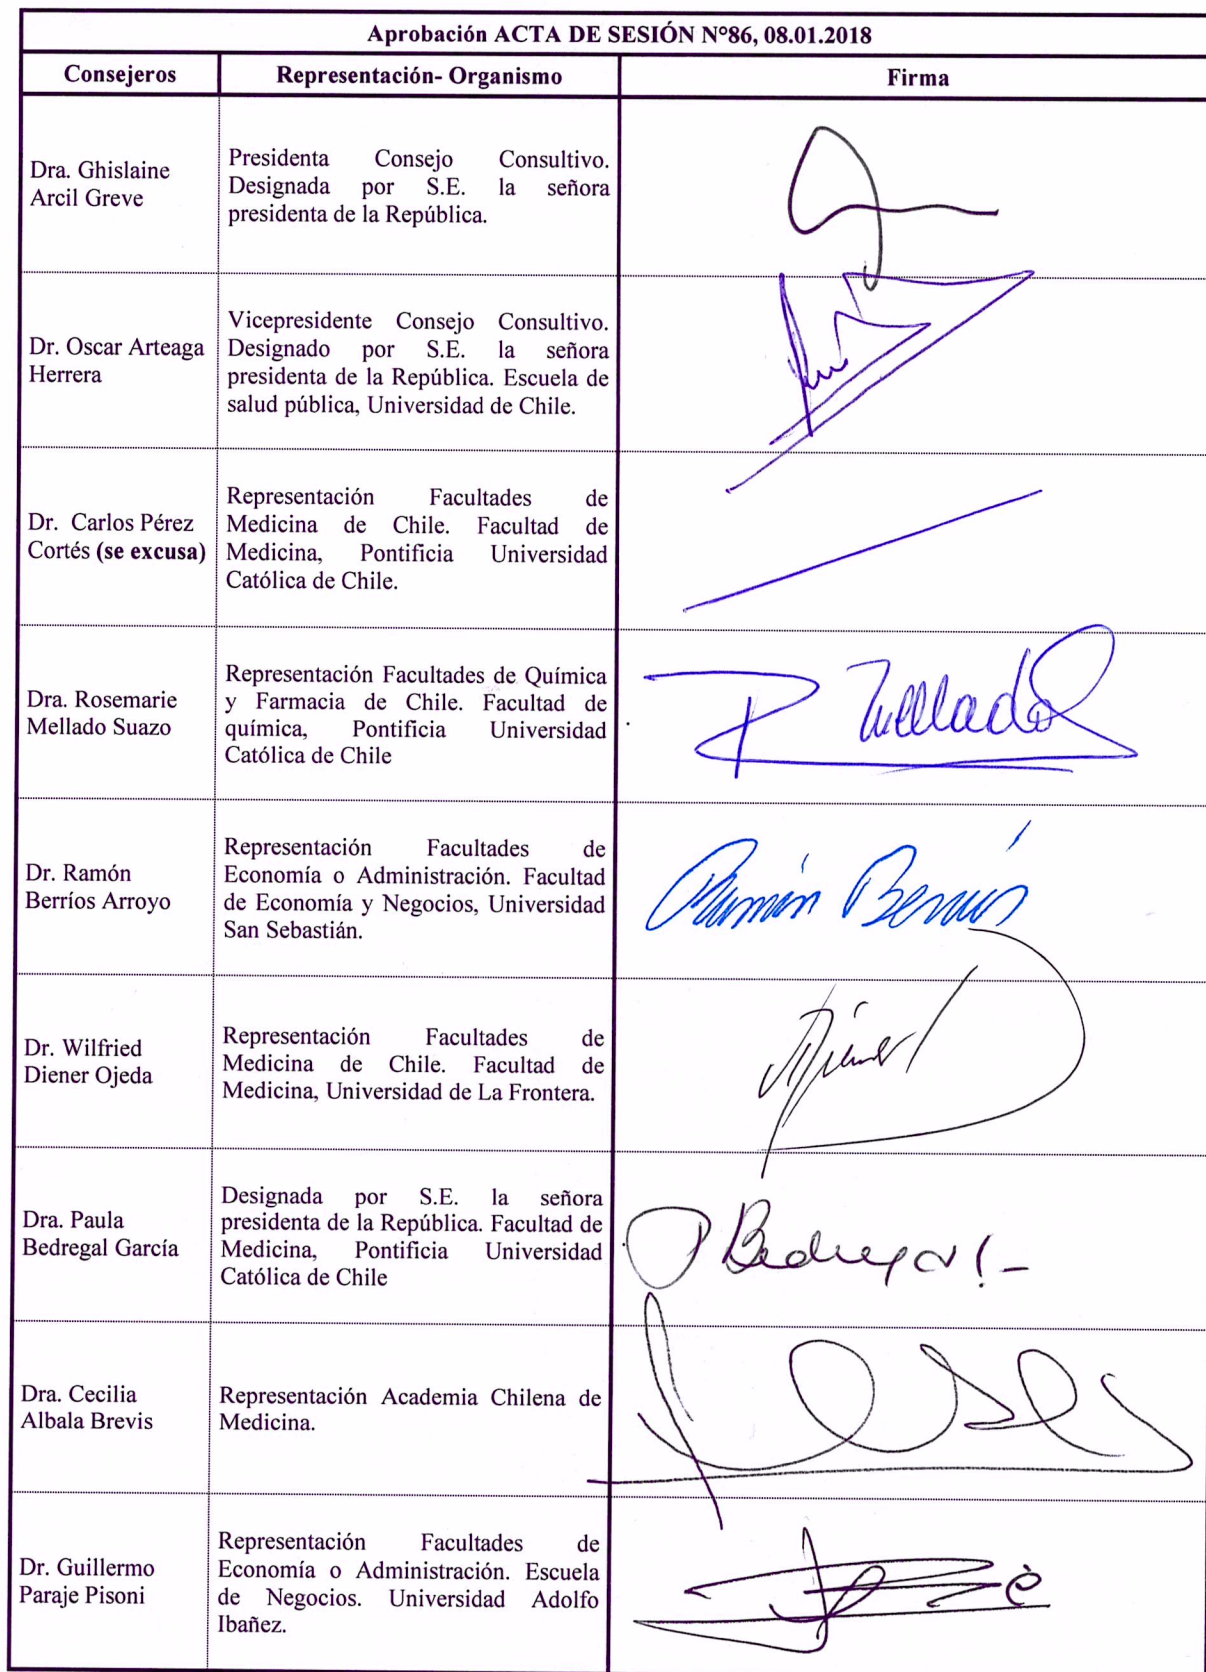 Aprobación ACTA DE SESIÓN Nº86, 08.01.2018
Consejeros
Representación- Organismo
Firma
Dra. Ghislaine
Arcil Greve
Presidenta Consejo Consultivo.
Designada por S.E. la señora
presidenta de la República.
Dr. Oscar Arteaga
Herrera
Vicepresidente Consejo Consultivo.
Designado por S.E. la señora
presidenta de la República. Escuela de
salud pública, Universidad de Chile.
Dr. Carlos Pérez
Cortés (se excusa)
Representación Facultades de
Medicina de Chile. Facultad de
Medicina, Pontificia Universidad
Católica de Chile.
Dra. Rosemarie
Mellado Suazo
Representación Facultades de Química
y Farmacia de Chile. Facultad de
química, Pontificia Universidad
Católica de Chile
R Mellado
Dr. Ramón
Berríos Arroyo
Representación Facultades de
Economía o Administración. Facultad
de Economía y Negocios, Universidad
San Sebastián.
Ramón Berríos
Dr. Wilfried
Diener Ojeda
Representación Facultades de
Medicina de Chile. Facultad de
Medicina, Universidad de La Frontera.
Diener
Dra. Paula
Bedregal García
Designada por S.E. la señora
presidenta de la República. Facultad de
Medicina, Pontificia Universidad
Católica de Chile
P Bedregal
Dra. Cecilia
Albala Brevis
Representación Academia Chilena de
Medicina.
Dr. Guillermo
Paraje Pisoni
Representación Facultades de
Economía o Administración. Escuela
de Negocios. Universidad Adolfo
Ibañez.